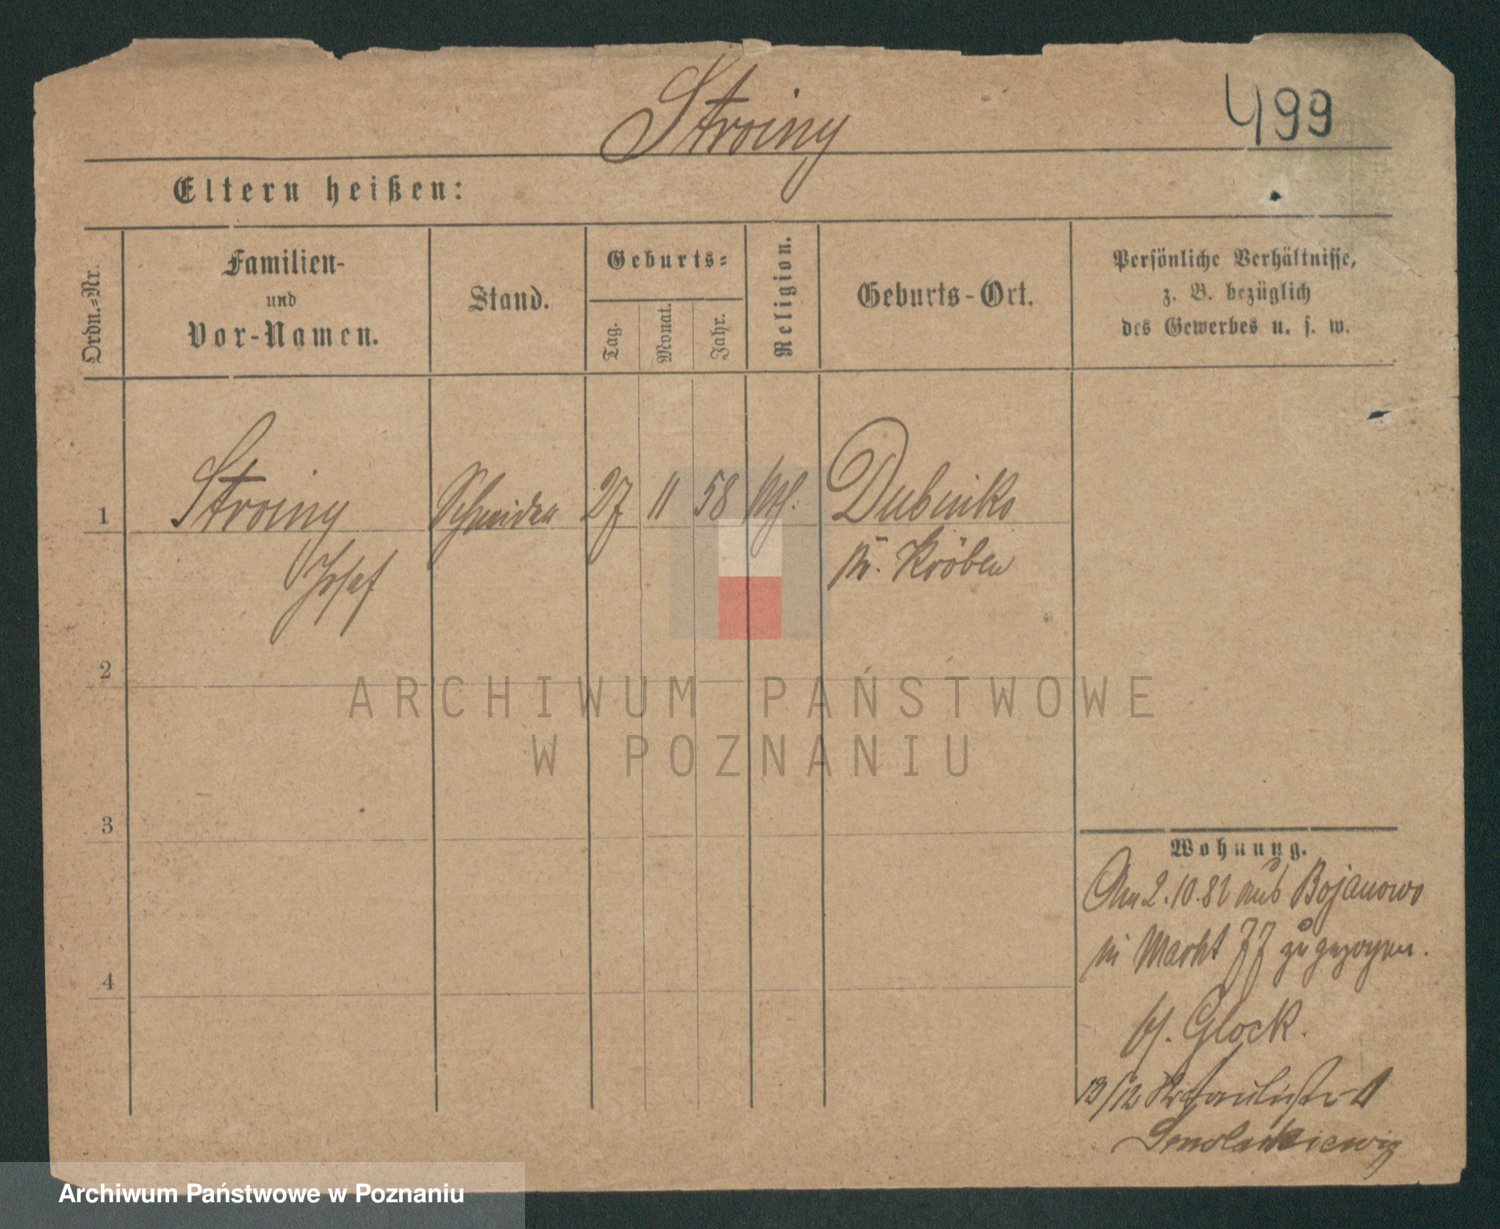 Stroiny
499
Eltern heißen:
Ordn.-Nr.
Familien-
und
Vor-Namen.
Stand.
Geburts-
Tag.
Monat.
Jahr.
Religion.
Geburts-Ort.
Persönliche Verhältnisse,
z. B. bezüglich
des Gewerbes u. s. w.
1
Stroiny
Josef
Schneider
27
11
58
kth.
Dubinko
Kr. Kröben
2
3
4
Wohnung.
Am 2.10.82 aus Bojanowo
in Markt 77 zugezogen.
bei Glock.
13/12 4
Smolarkiewicz
ARCHIWUM PAŃSTWOWE
W POZNANIU
Archiwum Państwowe w Poznaniu